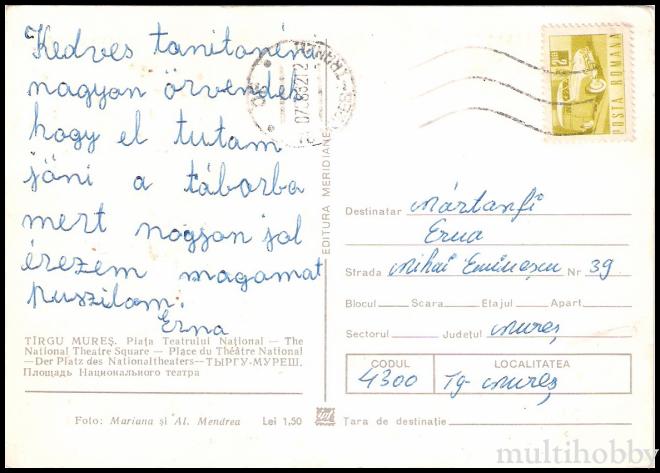 Kedves tanitonéni
nagyon örvendek
hogy el tutam
jöni a táborba
mert nagyon jol
érezem magamat
puszilom.
Erna
TÎRGU MUREȘ. Piața Teatrului Național — The
National Theatre Square — Place du Théâtre National
—Der Platz des Nationaltheaters—ТЫРГУ-МУРЕШ.
Площадь Национального театра
Foto: Mariana și Al. Mendrea Lei 1,50
EDITURA MERIDIANE
POSTA ROMANA
Destinatar Mártanfi
Erna
Strada Mihai Eminescu Nr 39
Blocul Scara Etajul Apart.
Sectorul Județul Mureș
CODUL LOCALITATEA
4300 Tg-Mureș
Țara de destinație
multihobby